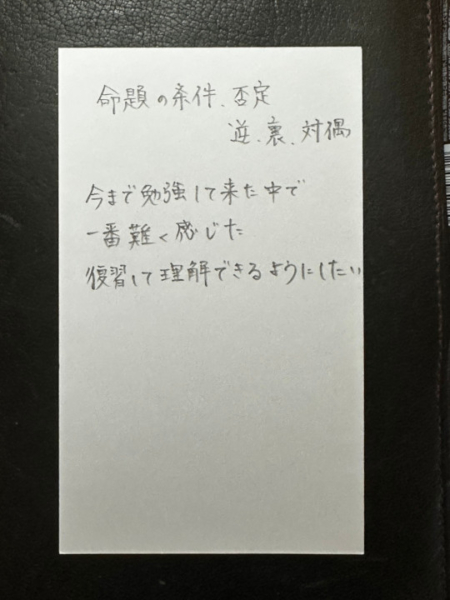 命題の条件、否定
逆、裏、対偶
今まで勉強して来た中で
一番難く感じた
復習して理解できるようにしたい